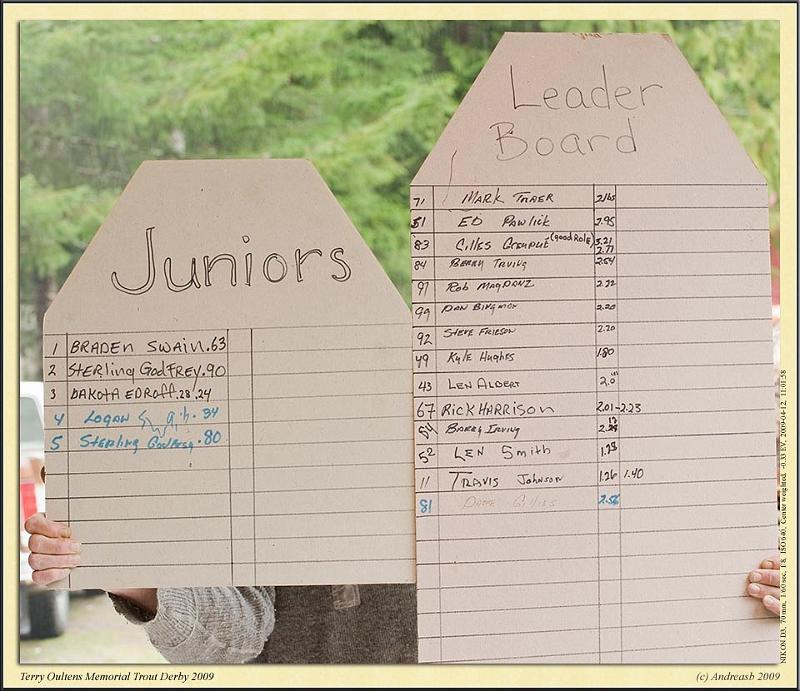 Juniors
1 BRADEN SWAIN .63
2 STERLING GODFREY .90
3 DAKOTA EDROFF .28/.24
4 LOGAN .34
5 Sterling Godfrey .80
Leader
Board
71 MARK
51 ED PAWLICK 2.95
83 GILLES (good Role) 3.21
2.71
84 BERRY IRVING 2.54
97 ROB MAGDANZ 2.22
99 DAN 2.20
92 STEVE FRIESEN 2.20
49 KYLE HUGHES 1.80
43 LEN ALBERT 2.0
67 RICK HARRISON 2.01-2.23
BARRY IRVING
52 LEN Smith
11 TRAVIS Johnson 1.26 1.40
81 Gillis 2.56
NIKON D3, 70 mm, 1/60 sec, f/8, ISO 640, Center weighted, -0.33 EV, 2009-04-12, 11:01:58
Terry Oultens Memorial Trout Derby 2009
(c) Andreasb 2009